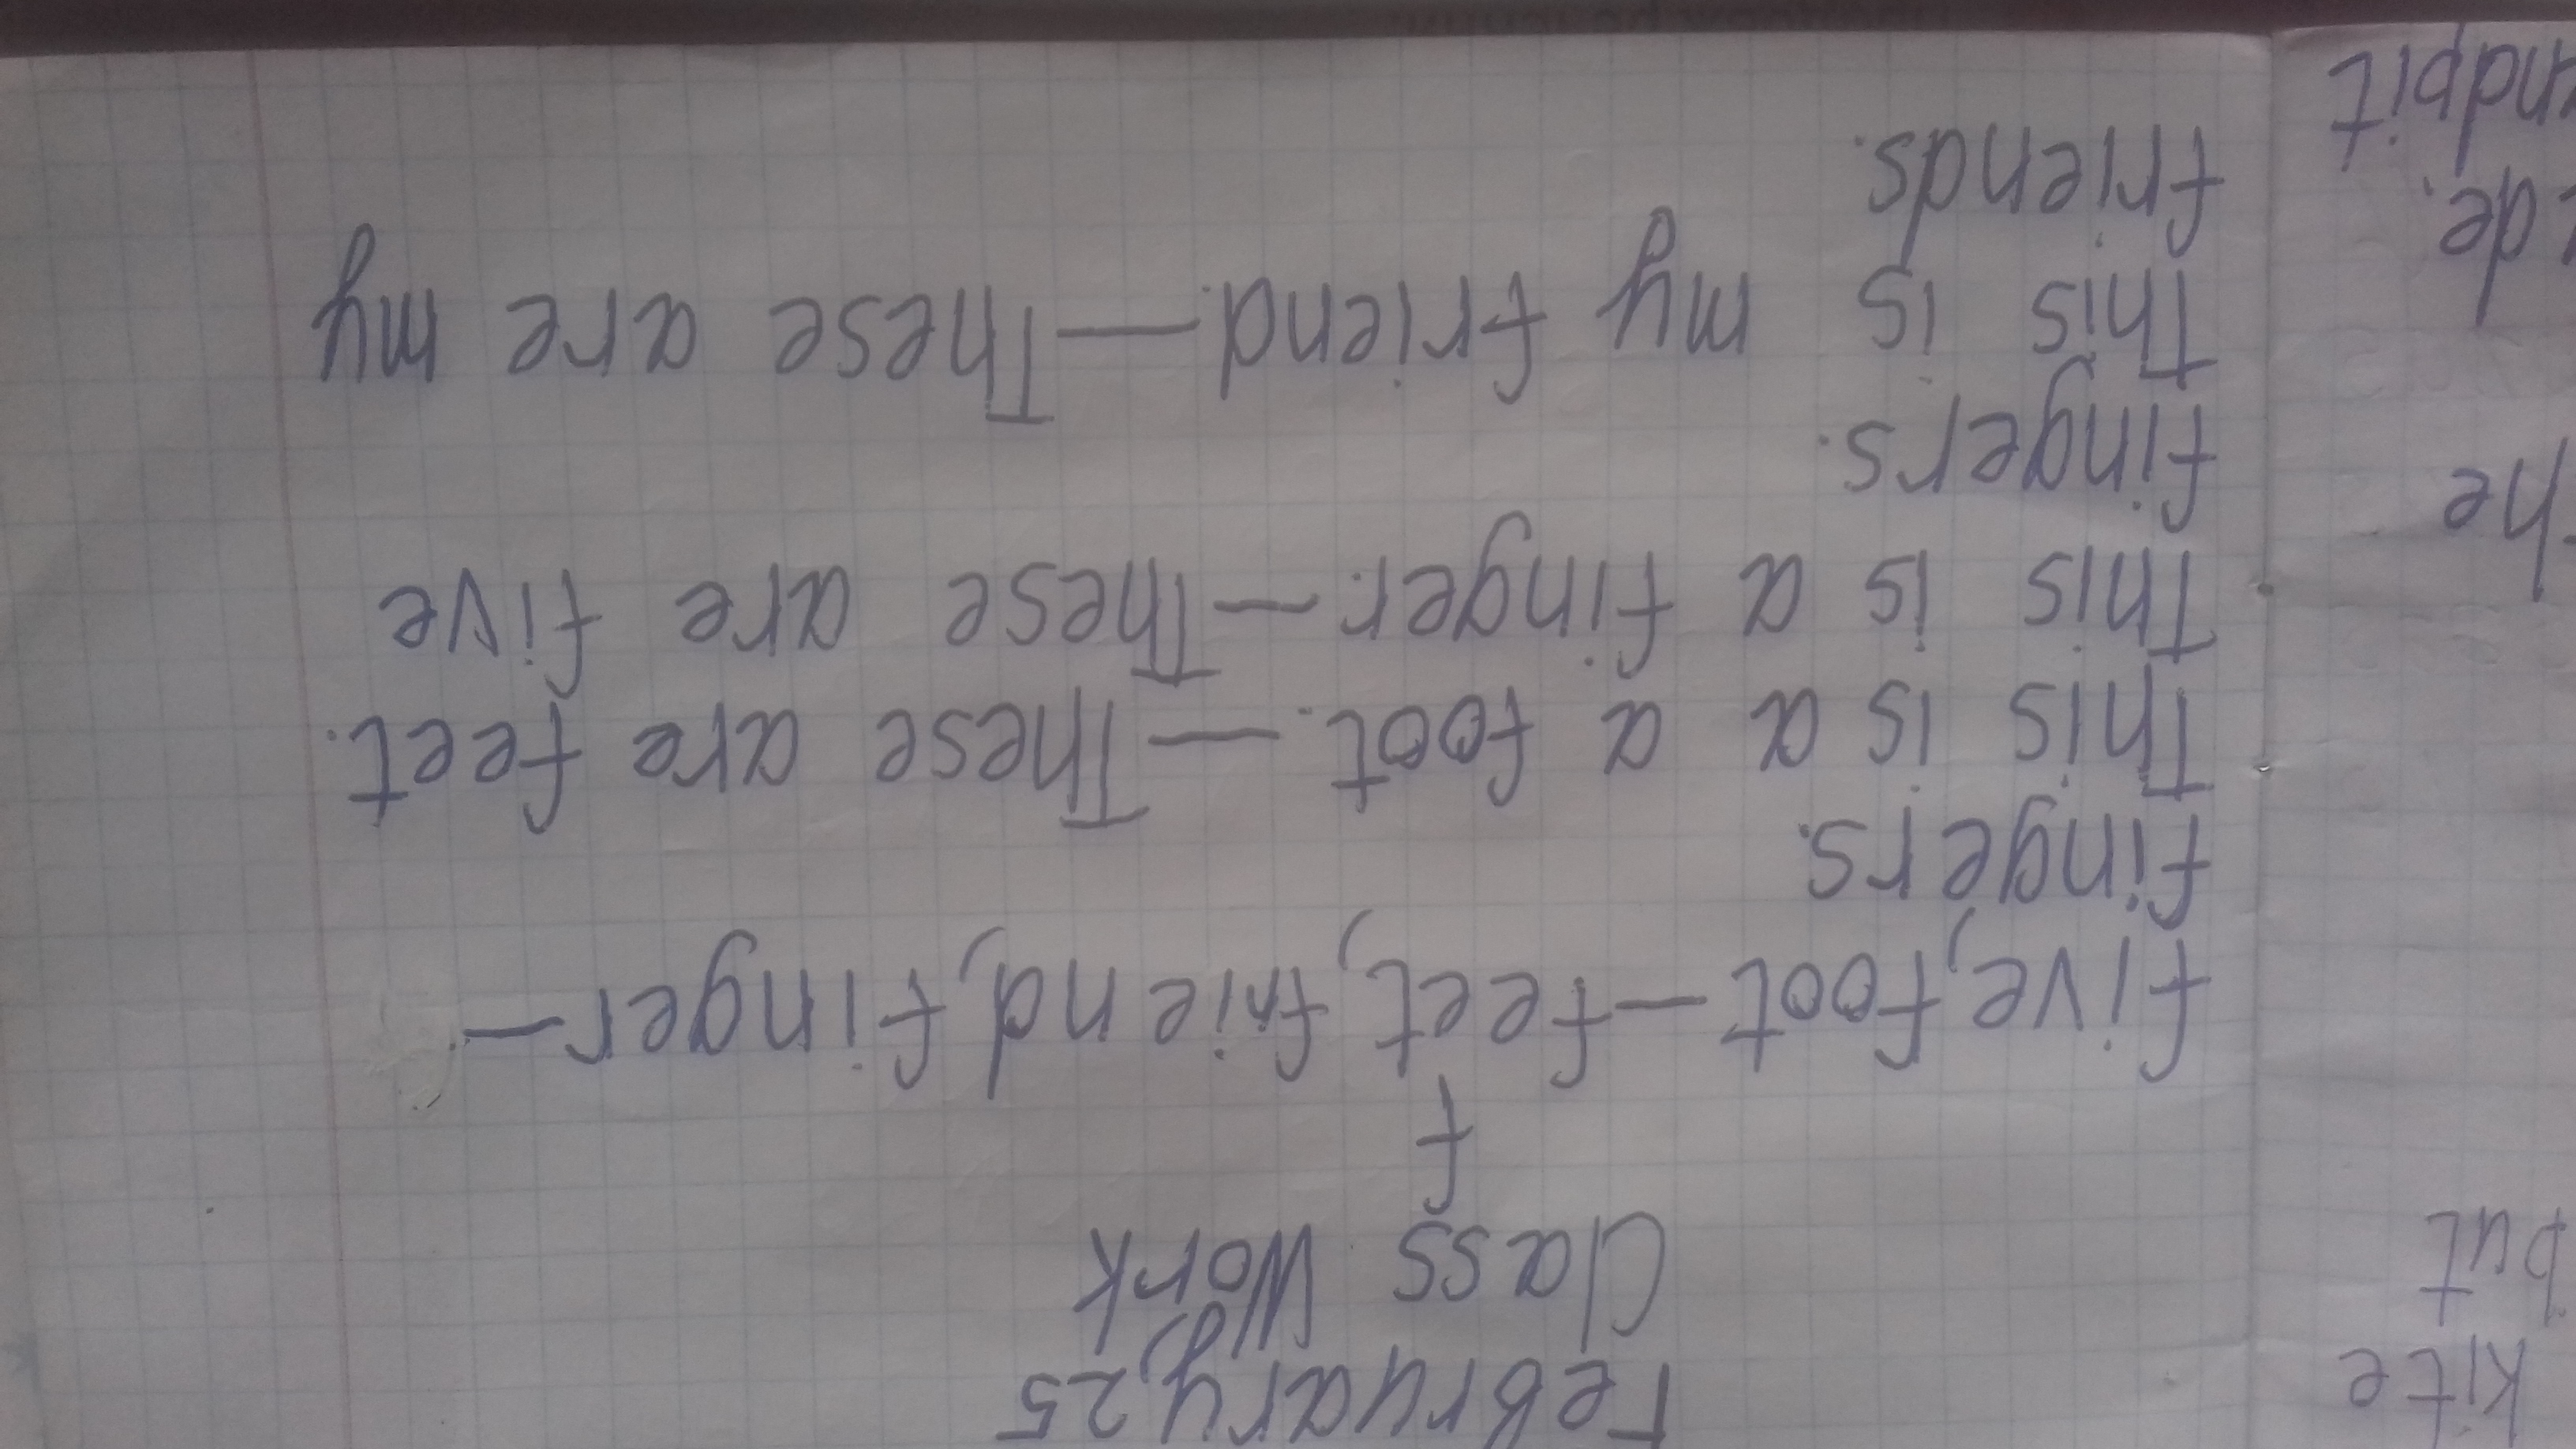 Febryary, 25
Class Work
f
five, foot – feet, friend, finger –
fingers.
This is a a foot. – These are feet.
This is a finger. – These are five
fingers.
This is my friend. – These are my
friends.
kite
but
he
de.
ndpit